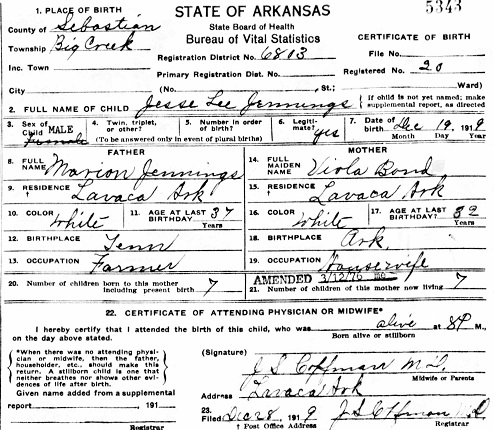 1. PLACE OF BIRTH
STATE OF ARKANSAS
5343
County of Sebastian
State Board of Health
Township Big Creek
Bureau of Vital Statistics
CERTIFICATE OF BIRTH
Inc. Town
Registration District No. 6803
File No.
Primary Registration Dist. No.
Registered No. 20
City (No. , St.; Ward)
2. FULL NAME OF CHILD Jesse Lee Jennings
If child is not yet named; make supplemental report, as directed
3. Sex of Child MALE Female
4. Twin, triplet, or other?
5. Number in order of birth?
(To be answered only in event of plural births)
6. Legitimate? yes
7. Date of birth Dec 19 1919
Month Day Year
FATHER
MOTHER
8. FULL NAME Marion Jennings
14. FULL MAIDEN NAME Viola Bond
9. RESIDENCE Lavaca Ark
15. RESIDENCE Lavaca Ark
10. COLOR White
11. AGE AT LAST BIRTHDAY 37 Years
16. COLOR White
17. AGE AT LAST BIRTHDAY? 32 Years
12. BIRTHPLACE Tenn
18. BIRTHPLACE Ark.
13. OCCUPATION Farmer
19. OCCUPATION Housewife
20. Number of children born to this mother including present birth 7
AMENDED 3/12/76
21. Number of children of this mother now living 7
22. CERTIFICATE OF ATTENDING PHYSICIAN OR MIDWIFE*
I hereby certify that I attended the birth of this child, who was alive at 8P M.
on the day above stated. Born alive or stillborn
*When there was no attending physician or midwife, then the father, householder, etc., should make this return. A stillborn child is one that neither breathes nor shows other evidences of life after birth.
(Signature) J S Coffman M.D.
Midwife or Parents
Given name added from a supplemental
Address Lavaca Ark
report , 191
23. Filed Dec 28, 1919 J S Coffman
Registrar
† Post Office Address
Registrar